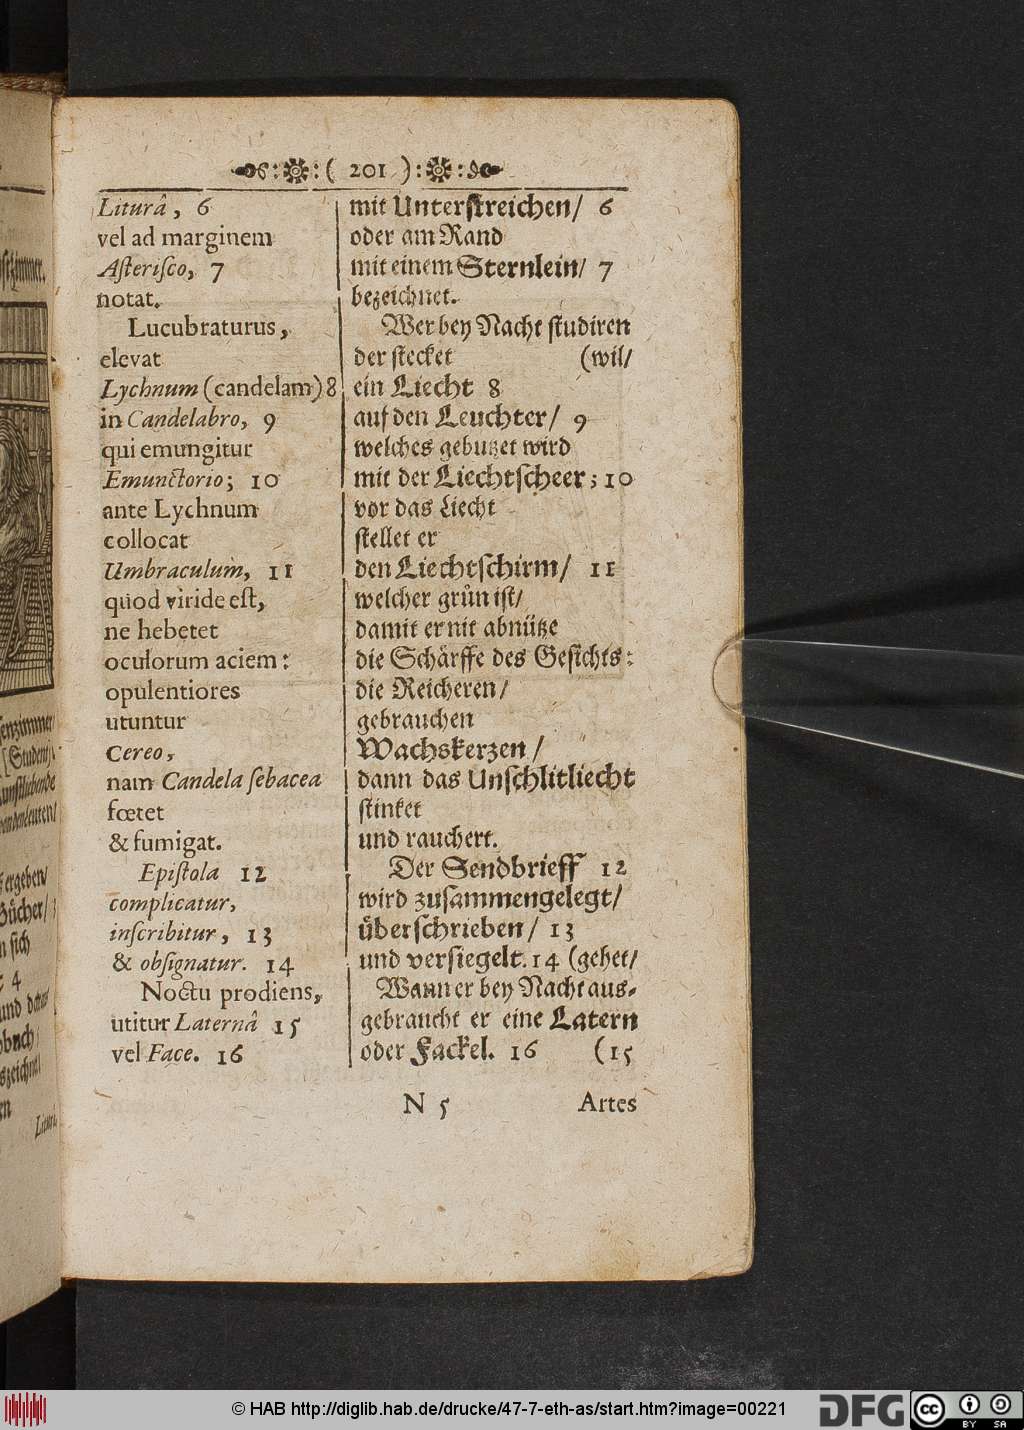 ( 201 )
Liturâ, 6
vel ad marginem
Aſteriſco, 7
notat.
Lucubraturus,
elevat
Lychnum (candelam) 8
in Candelabro, 9
qui emungitur
Emunctorio; 10
ante Lychnum
collocat
Umbraculum, 11
quod viride eſt,
ne hebetet
oculorum aciem:
opulentiores
utuntur
Cereo,
nam Candela ſebacea
fœtet
& fumigat.
Epiſtola 12
complicatur,
inſcribitur, 13
& obſignatur. 14
Noctu prodiens,
utitur Laternâ 15
vel Face. 16
mit Unterſtreichen/ 6
oder am Rand
mit einem Sternlein/ 7
bezeichnet.
Wer bey Nacht ſtudiren
der ſtecket (wil/
ein Liecht 8
auf den Leuchter/ 9
welches gebutzet wird
mit der Liechtſcheer; 10
vor das Liecht
ſtellet er
den Liechtſchirm/ 11
welcher gruͤn iſt/
damit er nit abnuͤtze
die Schaͤrffe des Geſichts:
die Reicheren/
gebrauchen
Wachskerzen/
dann das Unſchlitliecht
ſtinket
und rauchert.
Der Sendbrieff 12
wird zuſammengelegt/
uͤberſchrieben/ 13
und verſiegelt. 14 (gehet/
Wann er bey Nacht aus-
gebraucht er eine Latern
oder Fackel. 16 (15
N 5 Artes
© HAB http://diglib.hab.de/drucke/47-7-eth-as/start.htm?image=00221
DFG
cc BY SA